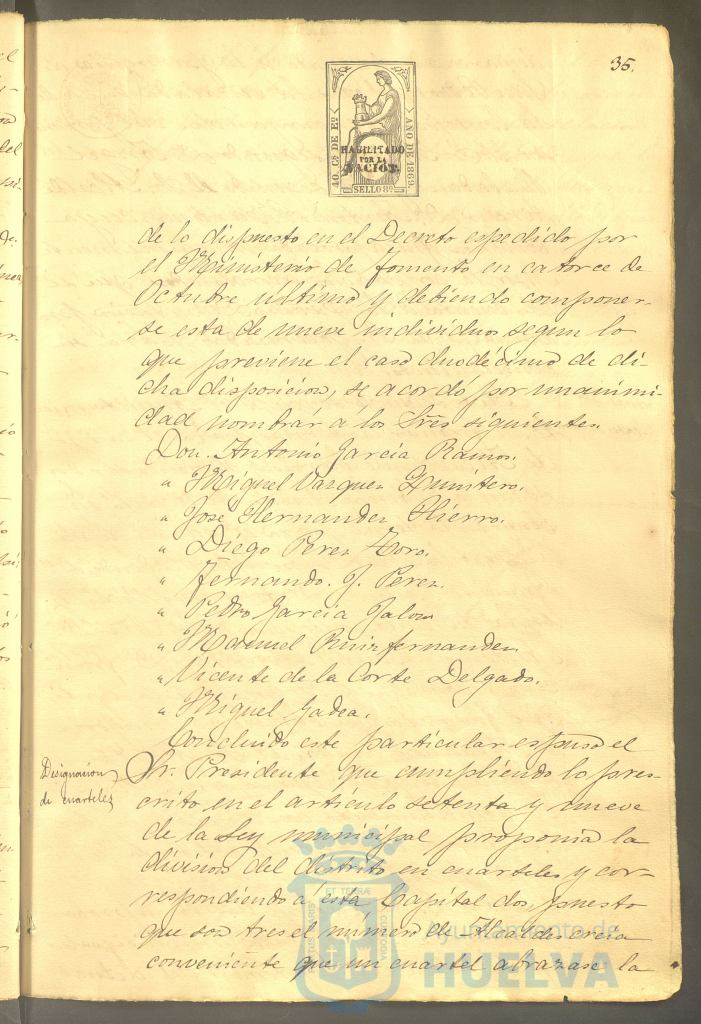 35.
40. Cs DE Eo
AÑO DE 1869.
HABILITADO
POR LA
NACION.
SELLO 8º
de lo dispuesto en el Decreto espedido por
el Ministerio de Fomento en catorce de
Octubre último y debiendo componer-
se esta de nueve individuos segun lo
que previene el caso duodécimo de di-
cha disposicion, se acordó por unanimi-
dad nombrar á los Sres siguientes.
Don. Antonio Garcia Ramos.
" Miguel Vazquez
" José Hernandez Hierro.
" Diego Perez Toro.
" Fernando. J. Perez.
" Pedro Garcia Jalon
" Manuel Ruiz fernandez.
" Vicente de la Corte Delgado.
" Miguel Gadea.
Concluido este particular espuso el
Designacion
de cuarteles
Sr. Presidente que cumpliendo lo pres-
crito en el artículo setenta y nueve
de la Ley municipal proponia la
division del distrito en cuarteles y cor-
respondiendo á esta Capital dos, puesto
que son tres el número de Alcaldes creia
conveniente que un cuartel abrazase la
Ayuntamiento de
HUELVA